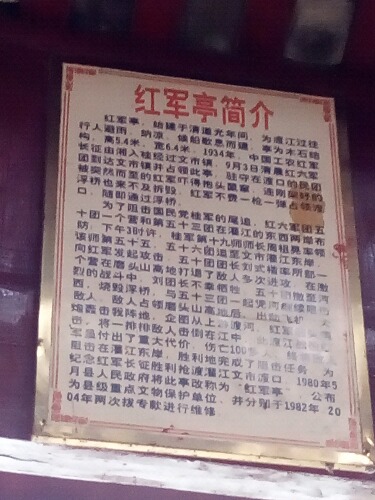 红军亭简介
红军亭，始建于清道光年间，为渡江过往
行人避雨、纳凉、候船歇息而建，亭为木石结
构，高5.4米，宽6.4米。1934年，中国工农红军
长征由湘入桂经过文市镇，9月3日清晨红六军
团到达文市镇并占领此亭，驻守在渡口的民团
被突然而至的红军吓得抱头鼠窜，连刚架好的
浮桥也来不及拆毁，红军不费一枪一弹占领渡
口，随即通过浮桥。
为了阻击国民党桂军的尾追，红六军团五
十团一个营和第五十三团在灌江的东西两岸布
防，下午3时许，桂军第十九师师长周祖晃率领
该师第五十五、五十六团追至文市灌江东岸，
向红军发起攻击，五十团团长刘式楷率所部一
个营在磨头山高地打退了敌人多次进攻，在激
烈的战斗中，刘团长不幸牺牲，五十团撤至河
西，烧毁浮桥，与五十三团一起凭河继续阻击
敌人。敌人占领磨头山高地后，出动飞机、大
炮轰击我阵地，企图从上游渡河，红军
击，将一排排敌人击倒在江中，此
军虽付出了重大代价，伤亡100多人
阻击在灌江东岸，胜利地完成了阻击任务。为
纪念红军长征胜利抢渡灌江文市渡口，1980年5
月县人民政府将此亭改称为"红军亭"，公布
为县级重点文物保护单位，并分别于1982年、20
04年两次拨专款进行维修。